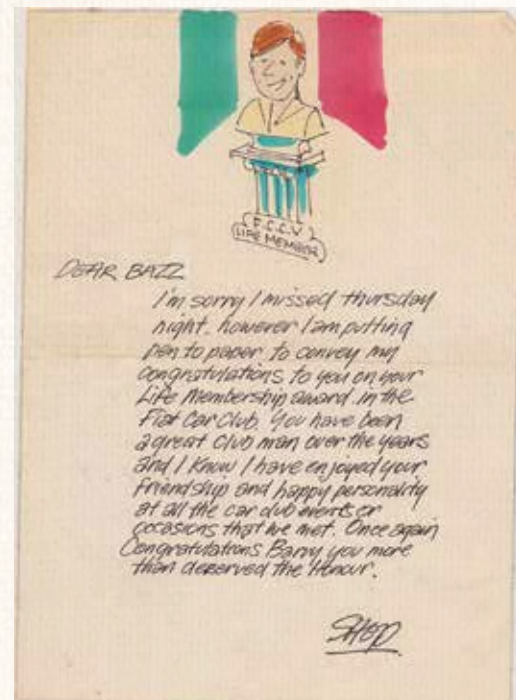 F.C.C.V
LIFE MEMBER
DEAR BAZZ
I'm sorry I missed thursday
night. however I am putting
pen to paper to convey my
congratulations to you on your
Life Membership award in the
Fiat Car Club. You have been
a great club man over the years
and I know I have enjoyed your
friendship and happy personality
at all the car club events or
occasions that we met. Once again
Congratulations Barry you more
than deserved the Honour.